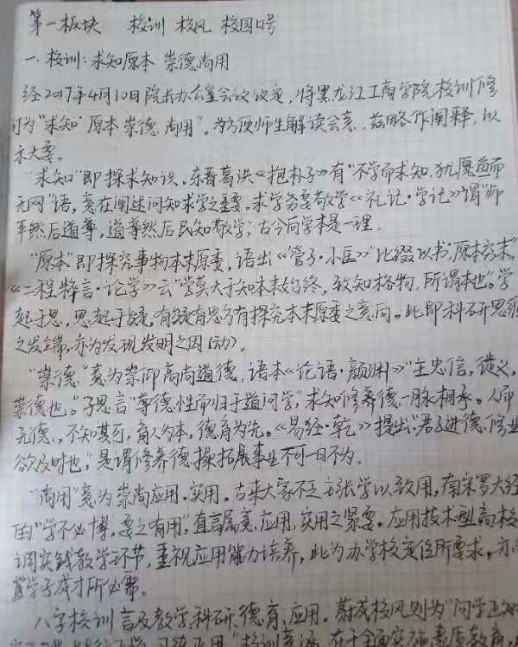 第一板块 校训 校风 校园口号
一、校训：求知原本 崇德尚用
经2017年4月10日院长办公室会议议定，将黑龙江工商学院校训修
订为“求知 原本 崇德 尚用”。为方便师生解读会意，兹略作阐释，以
示大要。
“求知”即探求知识。东晋葛洪《抱朴子》有“不学而求知，犹愿鱼而
无网”语，意在阐述问知求学之重要。求学务要敬学《礼记·学记》谓“师
严然后道尊，道尊然后民知敬学；古今向学本是一理。
“原本”即探究事物本末原委，语出《管子·小匡》“比缀以书，原本穷末”
《二程粹言·论学》云“学莫大于知本末始终，致知格物，所谓本也”。学
起于思，思起于疑，有疑有思方有探究本末原委之意向。此即科研思维
之发端，亦为发现发明之因（动）。
“崇德”意为崇仰高尚道德，语本《论语·颜渊》“主忠信，徙义，
崇德也。”子思言“尊德性而归于道问学”，求知修养德一脉相承。人而
无德，不知其可，育人为本，德育为先。《易经·乾》提出“君子进德修业
欲及时也，”是谓修养德操拓展事业不可一日不为。
“尚用”意为崇尚应用、实用。古来大家不乏主张学以致用，南宋罗大经
的“学不必博，要之有用”，直言属意应用、实用之紧要。应用技术型高校
调实践教学环节，重视应用能力培养，此为办学校定位所要求，亦
莘莘学子成才所必需。
八字校训言及教学、科研、德育、应用。蔚成校风则为“问学正知